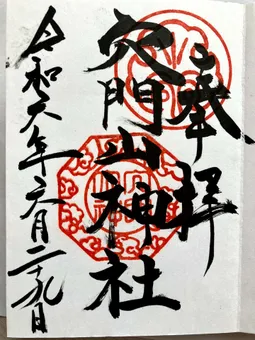 奉拝
穴門山神社
令和六年六月二十九日